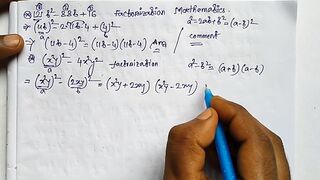 (a) 121b²-88b+16 factorization Mathematics.
a²-2ab+b²=(a-b)²
=(11b)²-2·11b·4+(4)²
a b
=(11b-4)²=(11b-4)(11b-4) Ans
comment
x⁴y²-4x²y² factorization
a²-b²=(a+b)(a-b)
=(x²y)²-(2xy)²=(x²y+2xy)(x²y-2xy)
a b